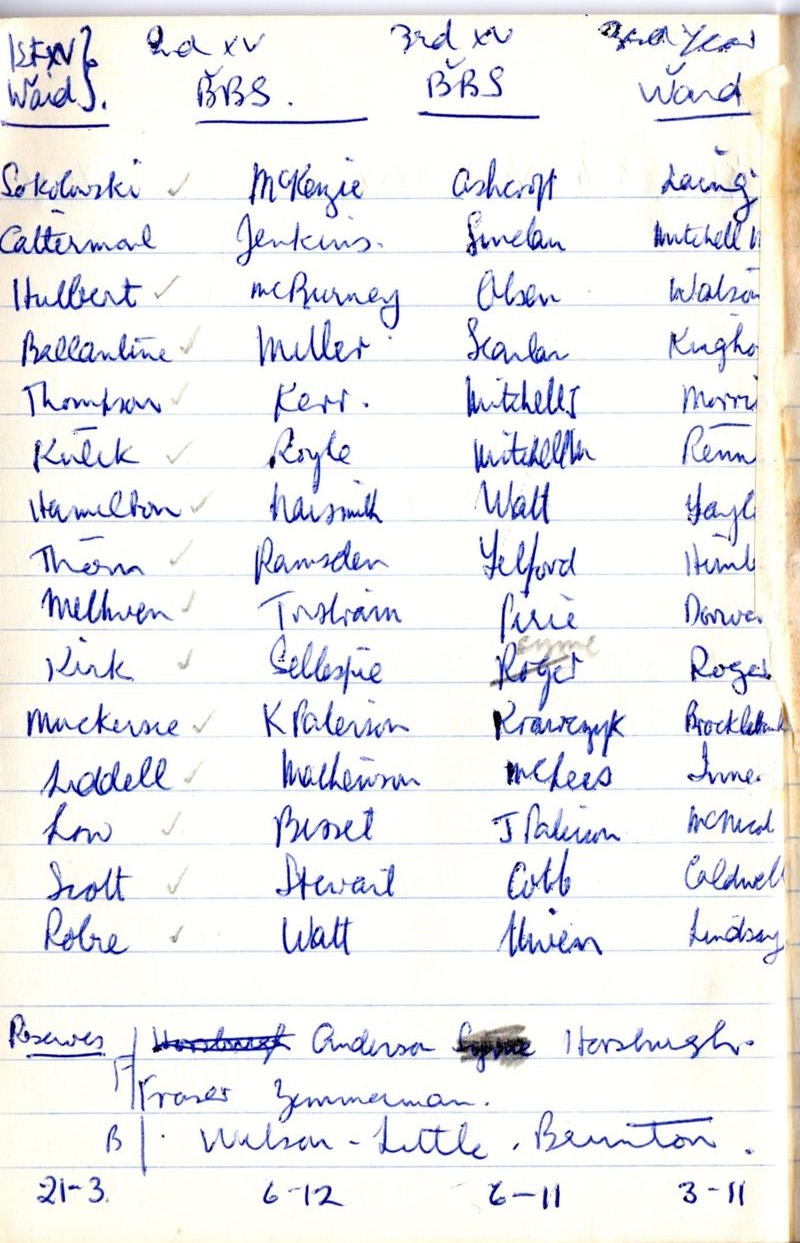 1st XV 2nd XV 3rd XV 3rd Year
Waid. BBS. BBS Waid
Sokolowski McKenzie Ashcroft Laing
Cattermoul Jenkins. Smelan Mitchell
Hulbert McBurney Olsen Watson
Ballantine Miller Scanlan Kingho
Thompson Kerr. Mitchell J Morri
Kulik Royle Mitchell M Renn
Hamilton Naismith Watt Tayl
Thom Ramsden Telford
Methven Tristram Pirie
Kirk Gillespie Roger Syme Roger
Muckersie K Paterson Krawczyk Brocklebank
Liddell Mathewson McLees Inne
Low Bisset J Paterson McNicol
Scott Stewart Cobb Caldwell
Robre Watt Niven Lindsay
Reserves Horsburgh Anderson Syme Horsburgh.
F Fraser Zimmerman.
B Wilson - Little, Brunton.
21-3. 6-12 6-11 3-11